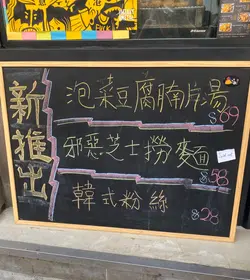 新推出
泡菜豆腐腩片湯
$69
邪惡芝士撈麵
$58
韓式粉絲
$28